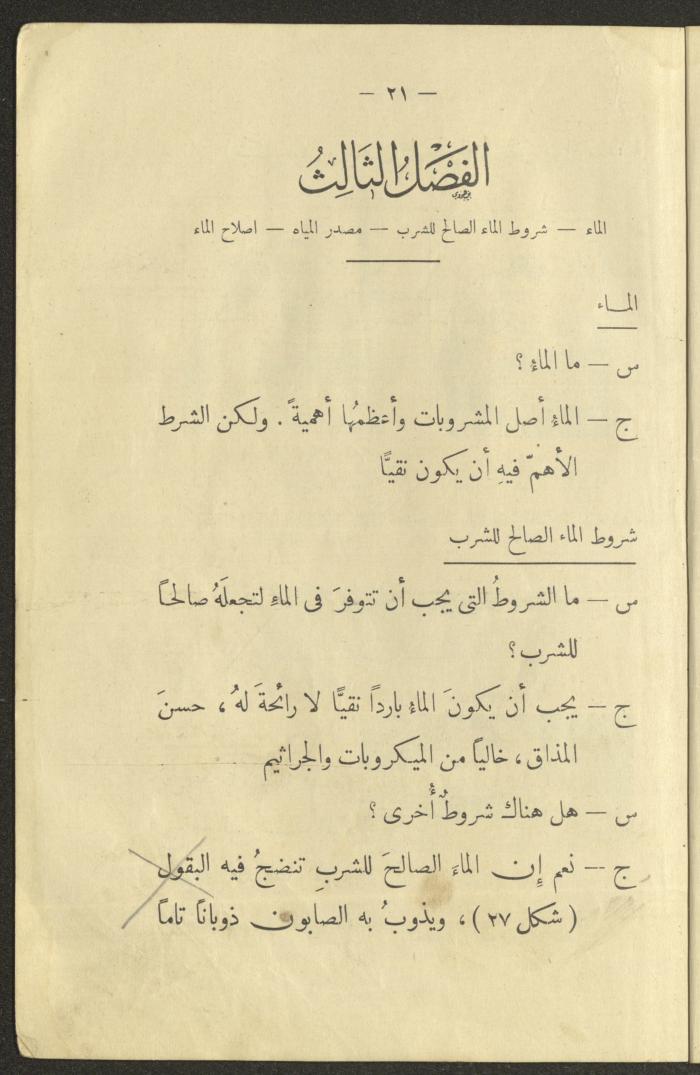 — ٢١ —
الفَصْلُ الثَالِثُ
الماء — شروط الماء الصالح للشرب — مصدر المياه — اصلاح الماء
المـاء
س — ما الماءُ ؟
ج — الماءُ أصل المشروبات وأعظمُها أهميةً . ولكن الشرط
الأهمّ فيهِ أن يكون نقيًّا
شروط الماء الصالح للشرب
س — ما الشروطُ التى يجب أن تتوفرَ فى الماءِ لتجعلَهُ صالحاً
للشرب ؟
ج — يجب أن يكونَ الماءُ بارداً نقيًّا لا رائحةَ لهُ ، حسنَ
المذاق ، خالياً من الميكروبات والجراثيم
س — هل هناك شروطٌ أُخرى ؟
ج — نعم إِن الماءَ الصالحَ للشربِ تنضجُ فيه البقول
( شكل ٢٧ ) ، ويذوبُ به الصابون ذوباناً تاماً